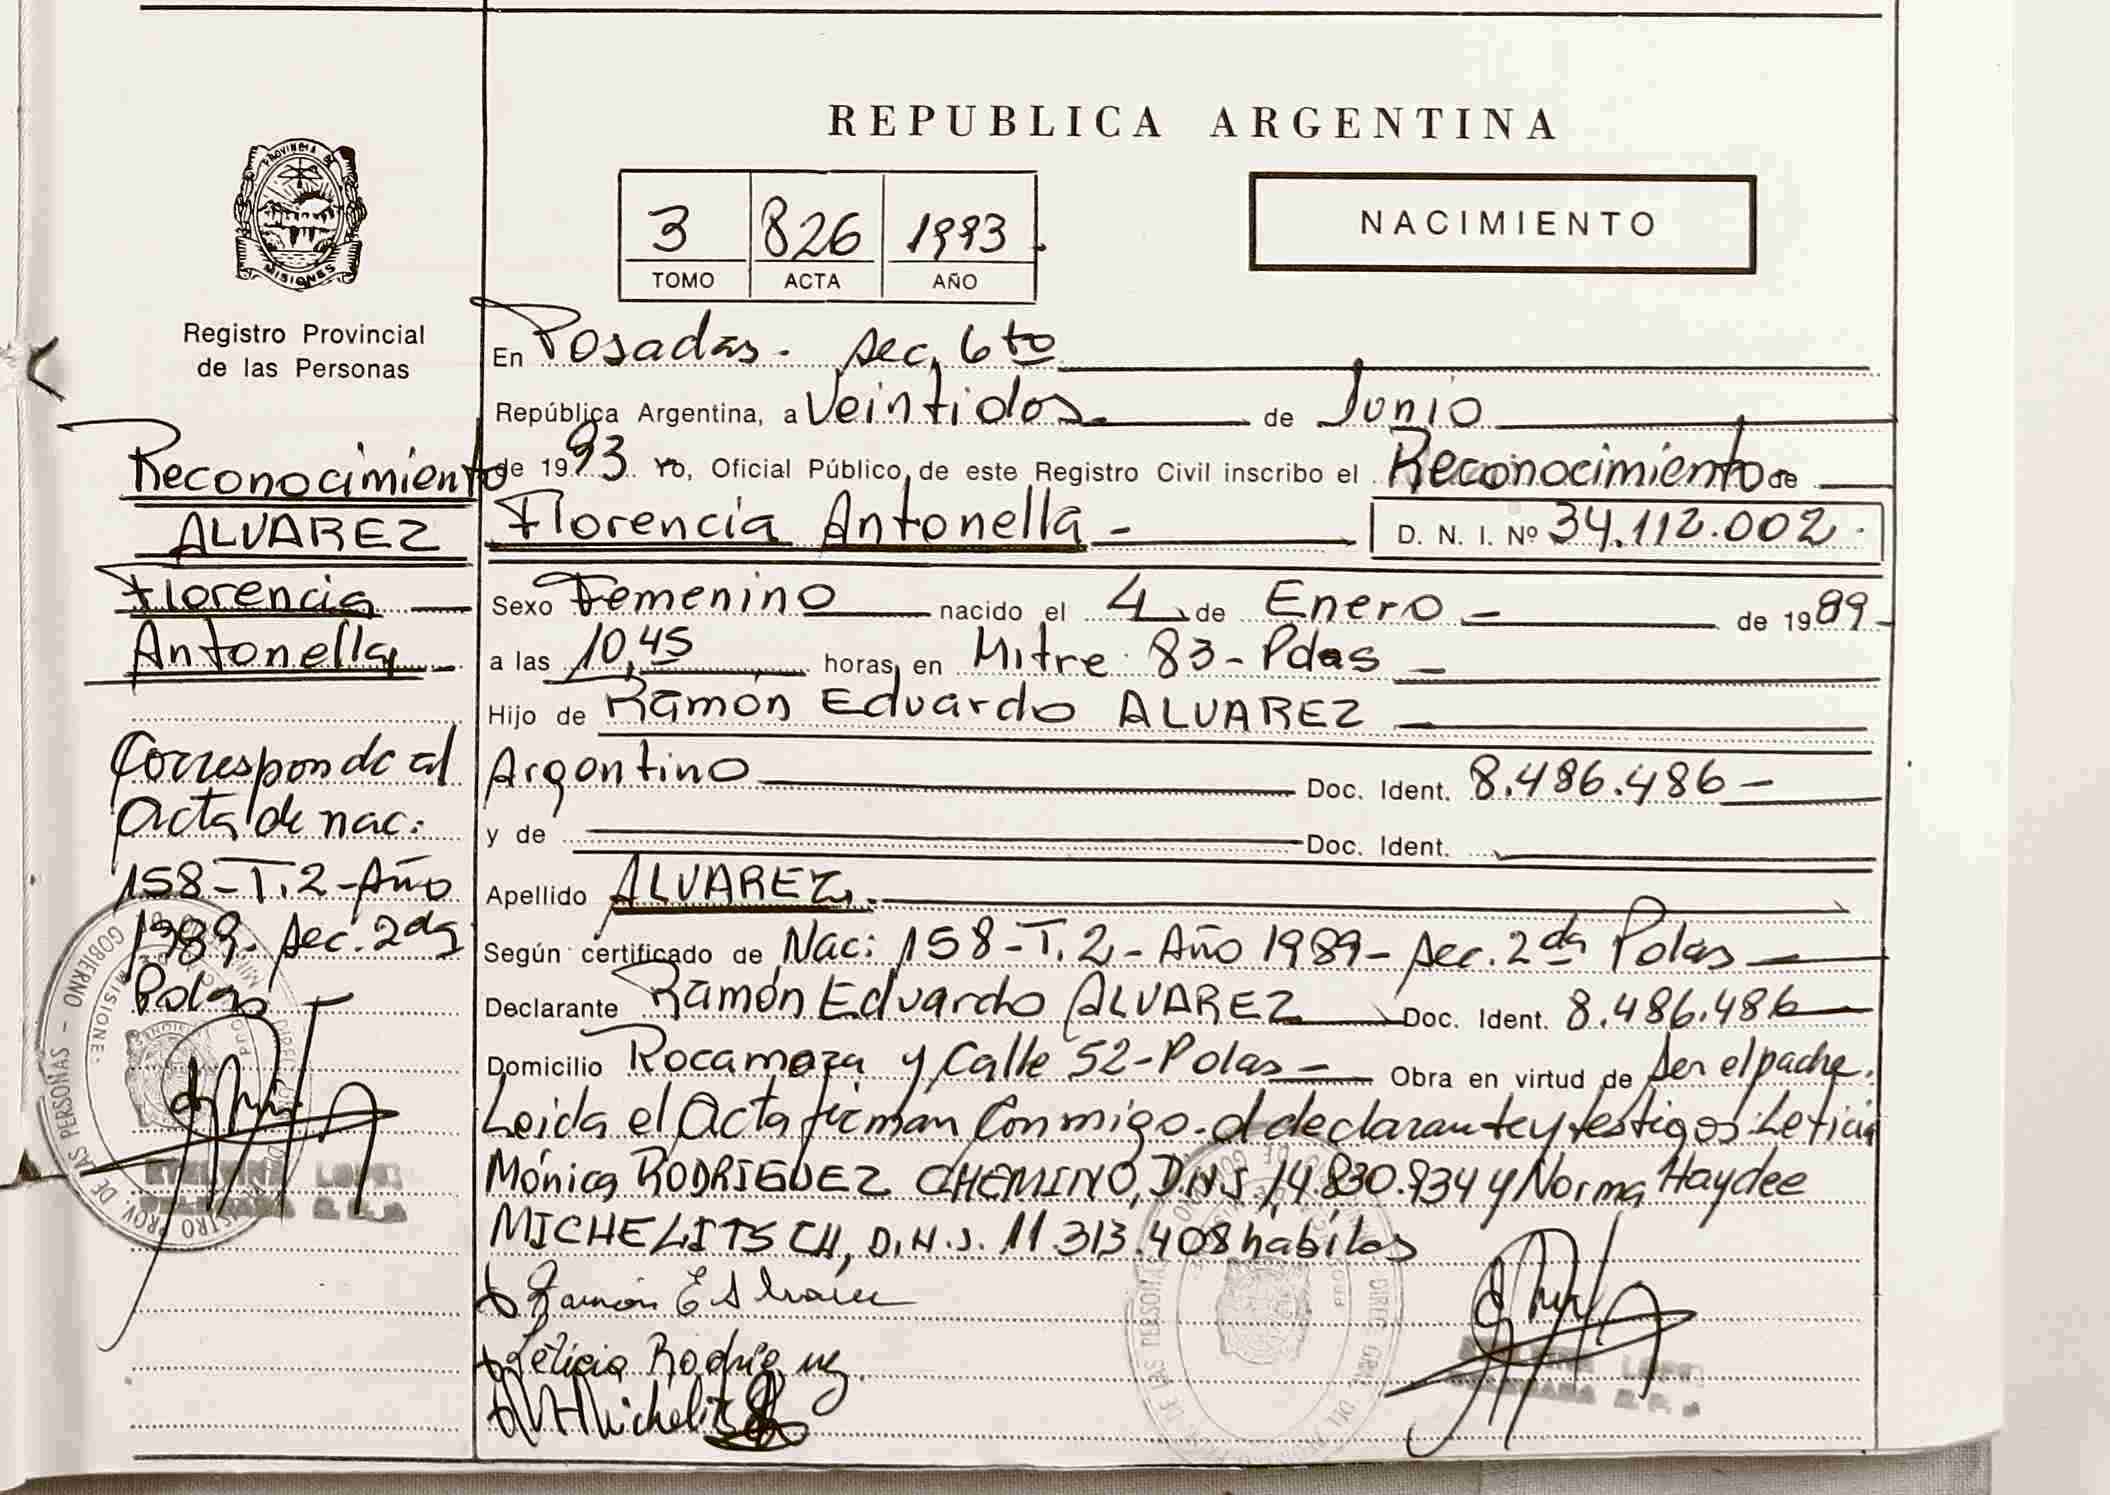 REPUBLICA ARGENTINA
PROVINCIA DE
MISIONES
3 826 1993
TOMO ACTA AÑO
NACIMIENTO
Registro Provincial
de las Personas
Reconocimiento
ALVAREZ
Florencia
Antonella
Corresponde al
Acta de nac:
158-T.2-Año
1989- sec. 2da
Pdas
En Posadas. sec, 6to
República Argentina, a Veintidos de Junio
de 1993 Yo, Oficial Público de este Registro Civil inscribo el Reconocimiento de
Florencia Antonella - D. N. I. Nº 34.112.002.
Sexo Femenino nacido el 4 de Enero - de 1989-
a las 10,45 horas en Mitre 83 - Pdas -
Hijo de Ramón Eduardo ALVAREZ -
Argentino Doc. Ident. 8.486.486-
y de Doc. Ident.
Apellido ALVAREZ.
Según certificado de Nac: 158-T.2-Año 1989- sec. 2da Pdas -
Declarante Ramón Eduardo ALVAREZ Doc. Ident. 8.486.486
Domicilio Rocamora y Calle 52-Pdas - Obra en virtud de ser el padre.
Leida el Acta firman conmigo. el declarante y testigos: Leticia
Mónica RODRIGUEZ CHEMINO, D.N.I 14.830.934 y Norma Haydee
MICHELITSCH, D.N.I. 11.313.408 hábiles
Ramón E Alvarez
Leticia Rodriguez